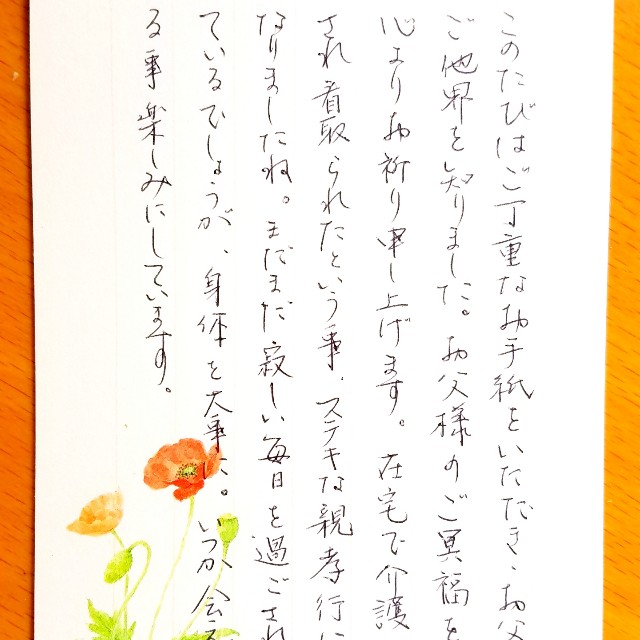 このたびはご丁重なお手紙をいただき、お父
ご他界を知りました。お父様のご冥福を
心よりお祈り申し上げます。在宅で介護
され看取られたという事、ステキな親孝行に
なりましたね。まだまだ寂しい毎日を過ごされ
ているでしょうが、身体を大事に。いつか会え
る事楽しみにしています。